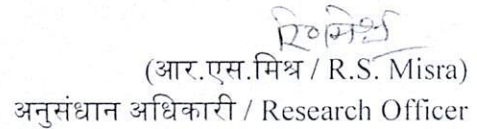 (आर.एस.मिश्र / R.S. Misra)
अनुसंधान अधिकारी / Research Officer